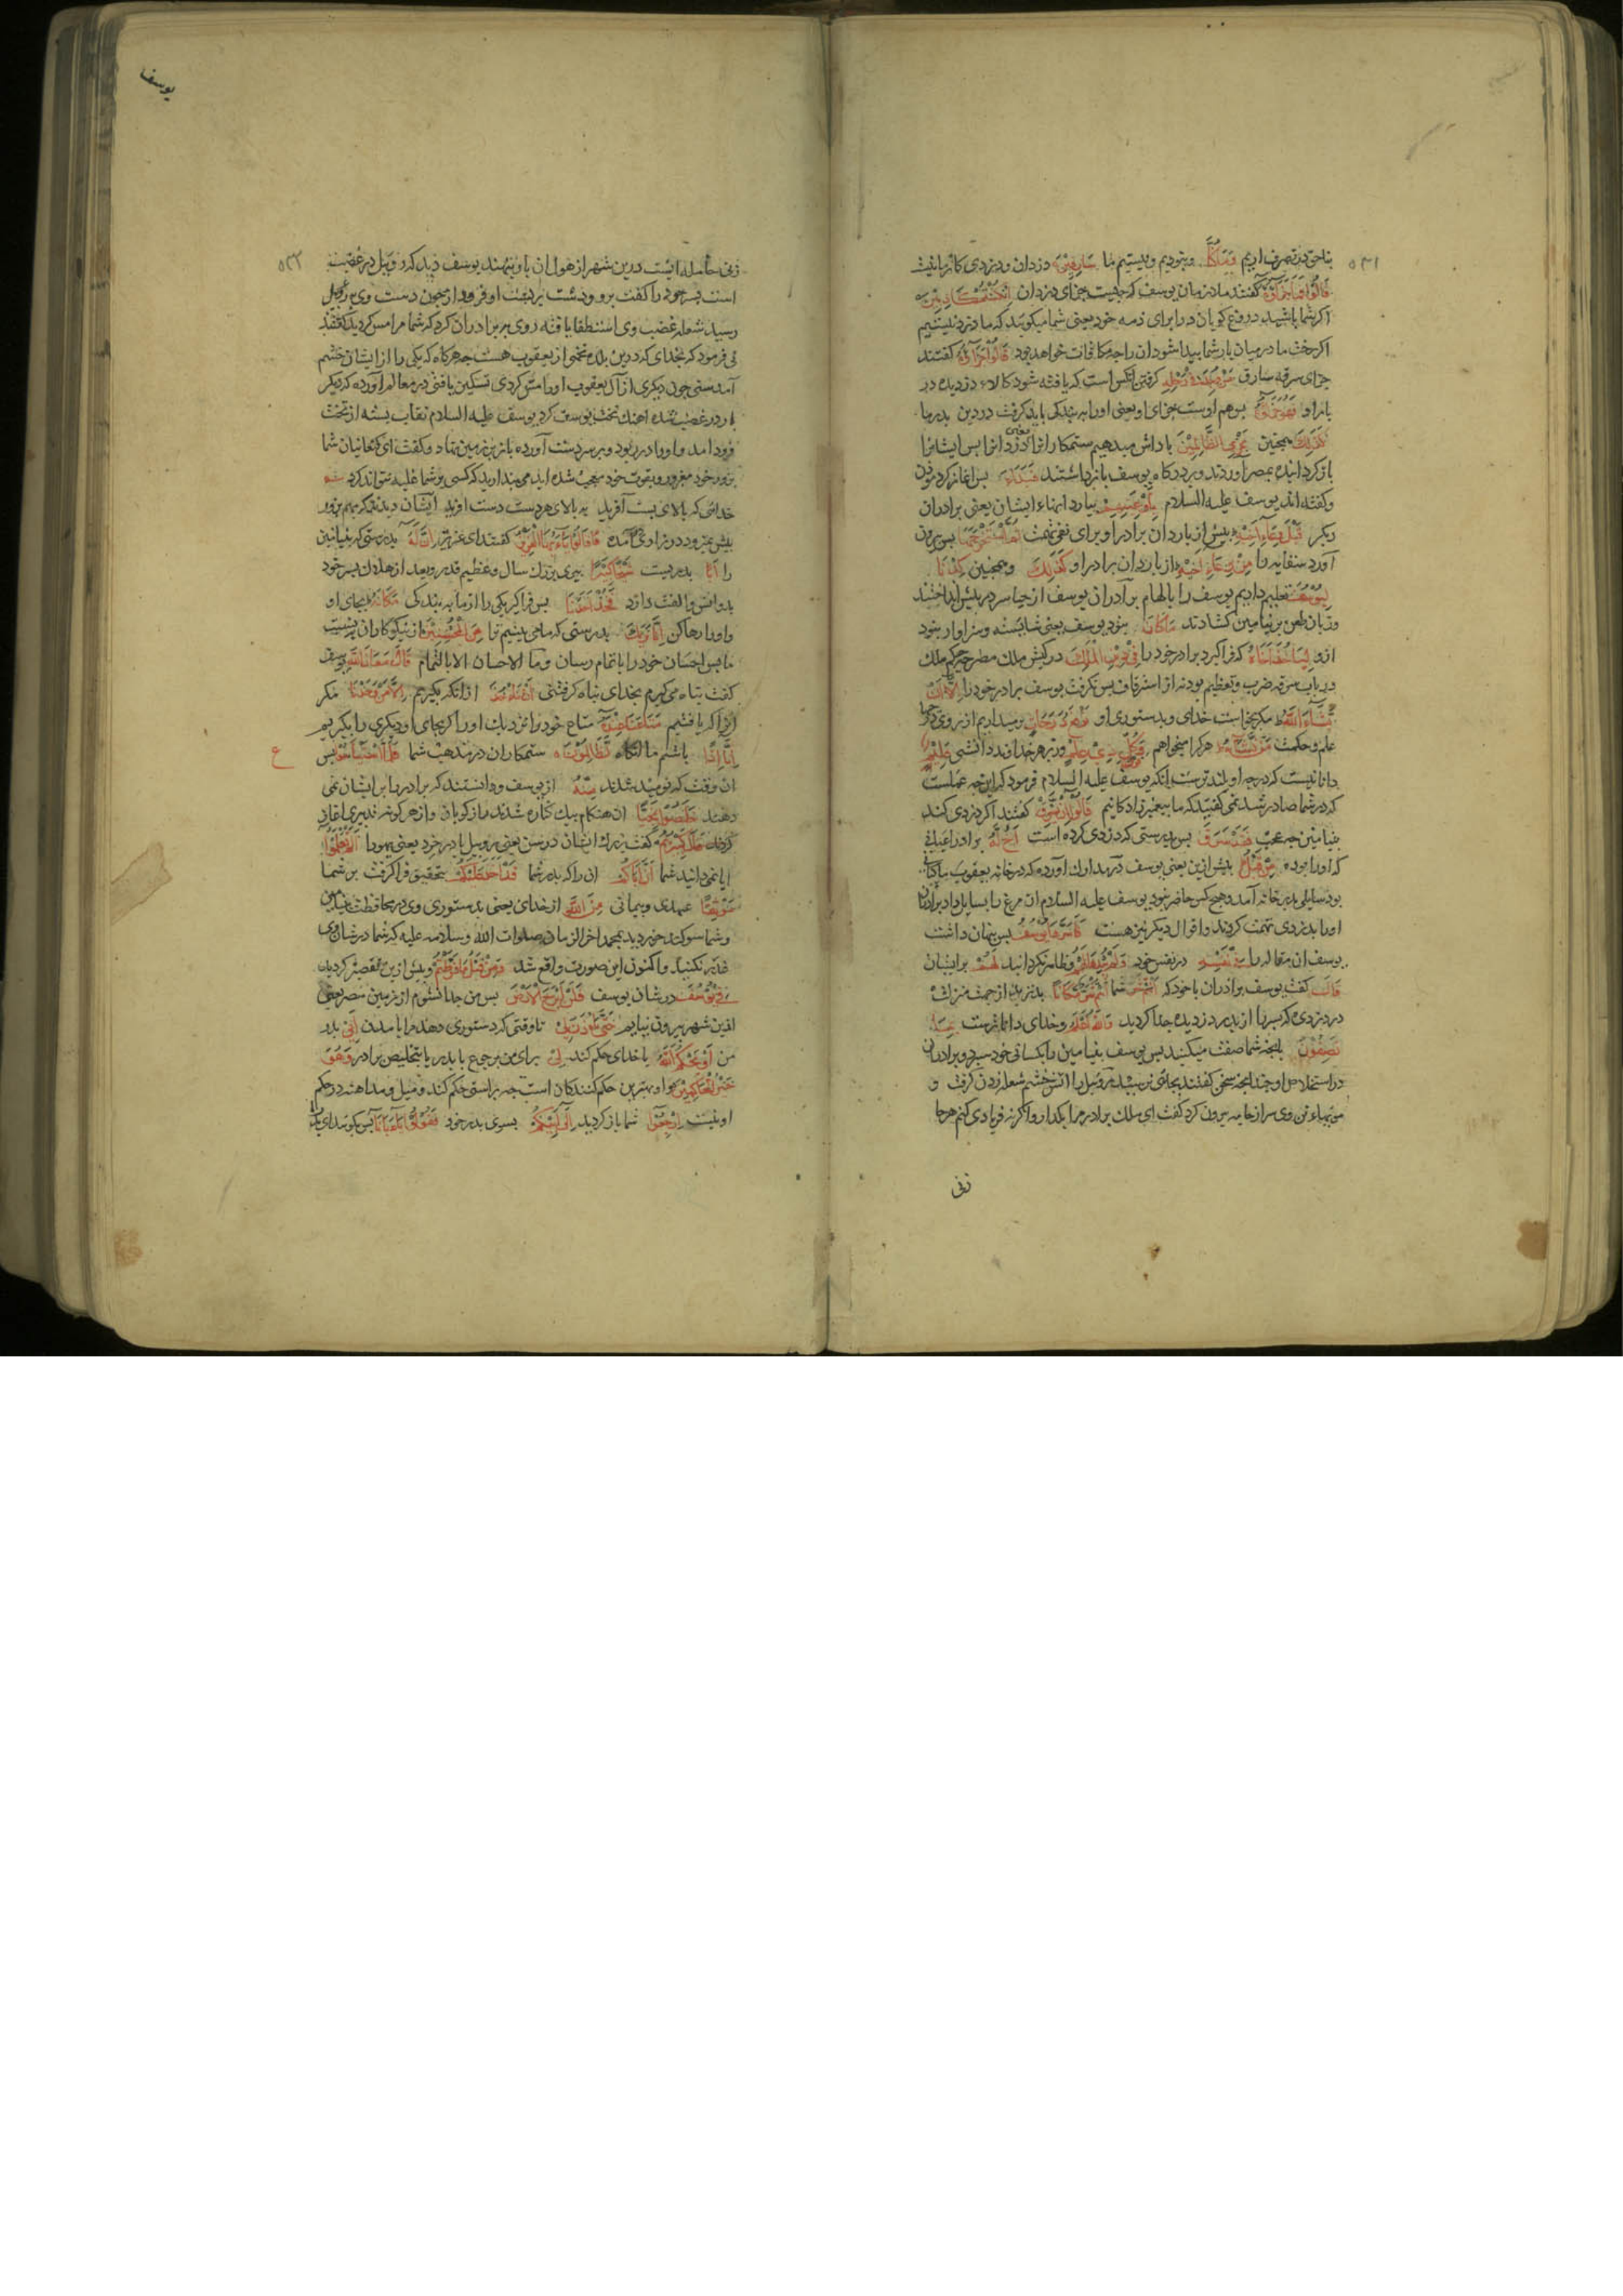 بناحق در تصرف اریم وَمَا كُنَّا و نبودیم و نیستیم ما سَارِقِینَ دزدان و دزدی کار ما نیست
قَالُوا فَمَا جَزَآؤُهُ گفتند ملازمان یوسف که چیست جزای دزدان اِنْ كُنْتُمْ كَاذِبِینَ
اکر شما باشید دروغ کویان در برای ذمه خود یعنی شما میکویید که ما دزد نیستیم
اکر رخت ما در میان بار شما پیدا شود ان را چه مکافات خواهد بود قَالُوا جَزَآؤُهُ کفتند
جزای سرقه سارق مَنْ وُجِدَ فِی رَحْلِهِ کرفتن انکس است که یافته شود کالاء دزدیده در
بار او فَهُوَ جَزَآؤُهُ پس هم اوست جزای او یعنی اورا به بندکی باید کرفت در دین پدر ما
كَذَلِكَ همچنین نَجْزِی الظَّالِمِینَ پاداش میدهیم ستمکارانرا یعنی دزدانرا پس ایشانرا
باز کردانیده بمصر اوردند و بر درکاه یوسف بازداشتند فَبَدَأَ پس اغاز کرد موذن
و کفته اند یوسف علیه السلام بِاَوْعِیَتِهِمْ ببار دانهاء ایشان یعنی برادران
دیکر قَبْلَ وِعَآءِ اَخِیهِ پیش از باردان برادر او برای نفی تهمت ثُمَّ اسْتَخْرَجَهَا پس بیرون
آورد سقایه را مِنْ وِعَآءِ اَخِیهِ از باردان برادر او كَذَلِكَ و همچنین كِدْنَا
لِیُوسُفَ تعلیم دادیم یوسف را بالهام برادران یوسف از حیا سر در پیش انداختند
و زبان طعن بر بنیامین کشادند مَا كَانَ نبود یوسف یعنی شایسته و سزاوار نبود
ازو لِیَأْخُذَ اَخَاهُ که فرا کیرد برادر خود را فِی دِینِ الْمَلِكِ در کیش ملک مصر چه حکم ملک
در باب سرقه ضرب و تعظیم بود نه از استرقاق پس نکرفت یوسف برادر خود را اِلَّا اَنْ
یَشَآءَ اللهُ مکر بخواست خدای و بدستوری او نَرْفَعُ دَرَجَاتٍ بر میداریم از روی درجها
علم و حکمت مَنْ نَشَآءُ هر کرا میخواهیم وَفَوْقَ كُلِّ ذِی عِلْمٍ و زبر هر خداوند دانشی عَلِیمٌ
دانائیست که درجه او بلندتر ست از انکه یوسف علیه السلام فرمود که این چه عملست
که در شما صادر شد نمی کفتید که ما پیغمبر زادکانیم قَالُوا اِنْ یَسْرِقْ کفتند اکر دزدی کند
بنیامین چه عجب فَقَدْ سَرَقَ پس بدرستی که دزدی کرده است اَخٌ لَهُ برادر اعیانی
که اورا بوده مِنْ قَبْلُ پیش ازین یعنی یوسف در مدارک آورده که در خانه یعقوب ماکیانی
بود سایلی بدر خانه آمد و هیچ کس حاضر نبود یوسف علیه السلام ان مرغ را بسایل داد برادران
اورا بدزدی تهمت کردند و اقوال دیکر نیز هست فَاَسَرَّهَا یُوسُفُ پس پنهان داشت
یوسف ان مقاله را فِی نَفْسِهِ در نفس خود وَلَمْ یُبْدِهَا لَهُمْ و ظاهر نکردانید لَهُمْ بر ایشان
قَالَ کفت یوسف برادران با خود که اَنْتُمْ شما شَرٌّ مَكَانًا بدترید از جهت منزلت
در دزدی که پسر را از پدر دزدیده جدا کردید وَاللهُ اَعْلَمُ و خدای داناترست بِمَا
تَصِفُونَ بانچه شما صفت میکنید پس یوسف بنیامین را بکسانی خود سپرد و برادران
در استخلاص او چندانچه سخن کفتند بجائی نرسید روبیل را اتش خشم شعله زدن کرفت و
مویهاء تن وی سر از جامه بیرون کرد کفت ای ملک برادر مرا بکذار و اکر نه فریادی کنم هر جا
زنی
۵۳۱
یوسف
۵۳۲
زنی حامله ایست درین شهر از هول ان بار بنهند یوسف دید که روبیل در غضب
است پسر خود را کفت برو و دست بر پشت او فرود ار چون دست وی بروبیل
رسید شعله غضب وی انطفا یافته روی بر برادران کرد که شما مرا مس کردید کفتند
نی فرمود که بخدای که درین بلده تخمی از یعقوب هست چه هرکاه که یکی را از ایشان خشم
آمدستی چون دیکری از آل یعقوب اورا مس کردی تسکین یافتی در معالم اورده که دیکر
بار در غضب شده اهنك تخت یوسف کرد یوسف علیه السلام نقاب بسته از تخت
فرود امد و اورا در ربود و بر سر دست آورده باز بر زمین نهاد و کفت ای کنعانیان شما
بزور خود مغرور و بقوت خود معجب شده اید می پندارید که کسی بر شما غلبه نتواند کرد
خدائی که بالای پست آفرید به بالای هر دست دست اورید ایشان دیدند که مهم بزور
پیش نمیرود در زاری آمده قَالُوا یَآ اَیُّهَا الْعَزِیزُ کفتند ای عزیز اِنَّ لَهُ بدرستی که بنیامین
را اَبًا پدریست شَیْخًا كَبِیرًا پیری بزرك سال و عظیم قدر و بعد از هلاك پسر خود
بدو انس و الفت دارد فَخُذْ اَحَدَنَا پس فرا کیر یکی را از ما به بندکی مَكَانَهُ بجای او
و اورا رها کن اِنَّا نَرَاكَ بدرستی که ما می بینیم ترا مِنَ الْمُحْسِنِینَ از نیکوکاران بنسبت
ما پس احسان خود را باتمام رسان و ما الاحسان الا بالتمام قَالَ مَعَاذَ اللهِ یوسف
کفت پناه می کیرم بخدای پناه کرفتنی اَنْ نَأْخُذَ از انکه بکیریم اِلَّا مَنْ وَجَدْنَا مکر
انرا که یافتیم مَتَاعَنَا عِنْدَهُ متاع خود را نزدیك او را کر بجای او دیکری را بکیریم
اِنَّا اِذًا باشیم ما انکاه لَظَالِمُونَ ستمکاران در مذهب شما فَلَمَّا اسْتَیْاَسُوا پس
ان وقت که نومید شدند مِنْهُ از یوسف و دانستند که برادر را بر ایشان نمی
دهند خَلَصُوا نَجِیًّا ان هنکام بیك کناره شدند راز کویان و از هر کونه تدبیری اغاز
کردند قَالَ كَبِیرُهُمْ کفت بزرك ایشان در سن یعنی روبیل یا در خرد یعنی یهودا اَلَمْ تَعْلَمُوا
ایا نمی دانید شما اَنَّ اَبَاكُمْ ان را که پدر شما قَدْ اَخَذَ عَلَیْكُمْ بتحقیق فرا کرفت بر شما
مَوْثِقًا عهدی و پیمانی مِنَ اللهِ از خدای یعنی بدستوری وی در محافظت بنیامین
و شما سوکند خوردید بمحمد اخر الزمان صلوات الله و سلامه علیه که شما در شان وی
غدر نکنید و اکنون این صورت واقع شد وَمِنْ قَبْلُ مَا فَرَّطْتُمْ و پیش ازین تقصیر کردید
فِی یُوسُفَ در شان یوسف فَلَنْ اَبْرَحَ الْاَرْضَ پس من جدا نشوم از زمین مصر یعنی
ازین شهر بیرون نیایم حَتَّى یَأْذَنَ لِی تا وقتی که دستوری دهد مرا بامدن اَبِی پدر
من اَوْ یَحْكُمَ اللهُ یا خدای حکم کند لِی برای من برجوع با پدر یا بتخلیص برادر وَهُوَ
خَیْرُ الْحَاكِمِینَ و او بهترین حکم کنندکان است چه براستی حکم کند و میل و مداهنه در حکم
او نیست اِرْجِعُوا شما باز کردید اِلَى اَبِیكُمْ بسوی پدر خود فَقُولُوا یَآ اَبَانَا پس بکویید ای پدر
ع